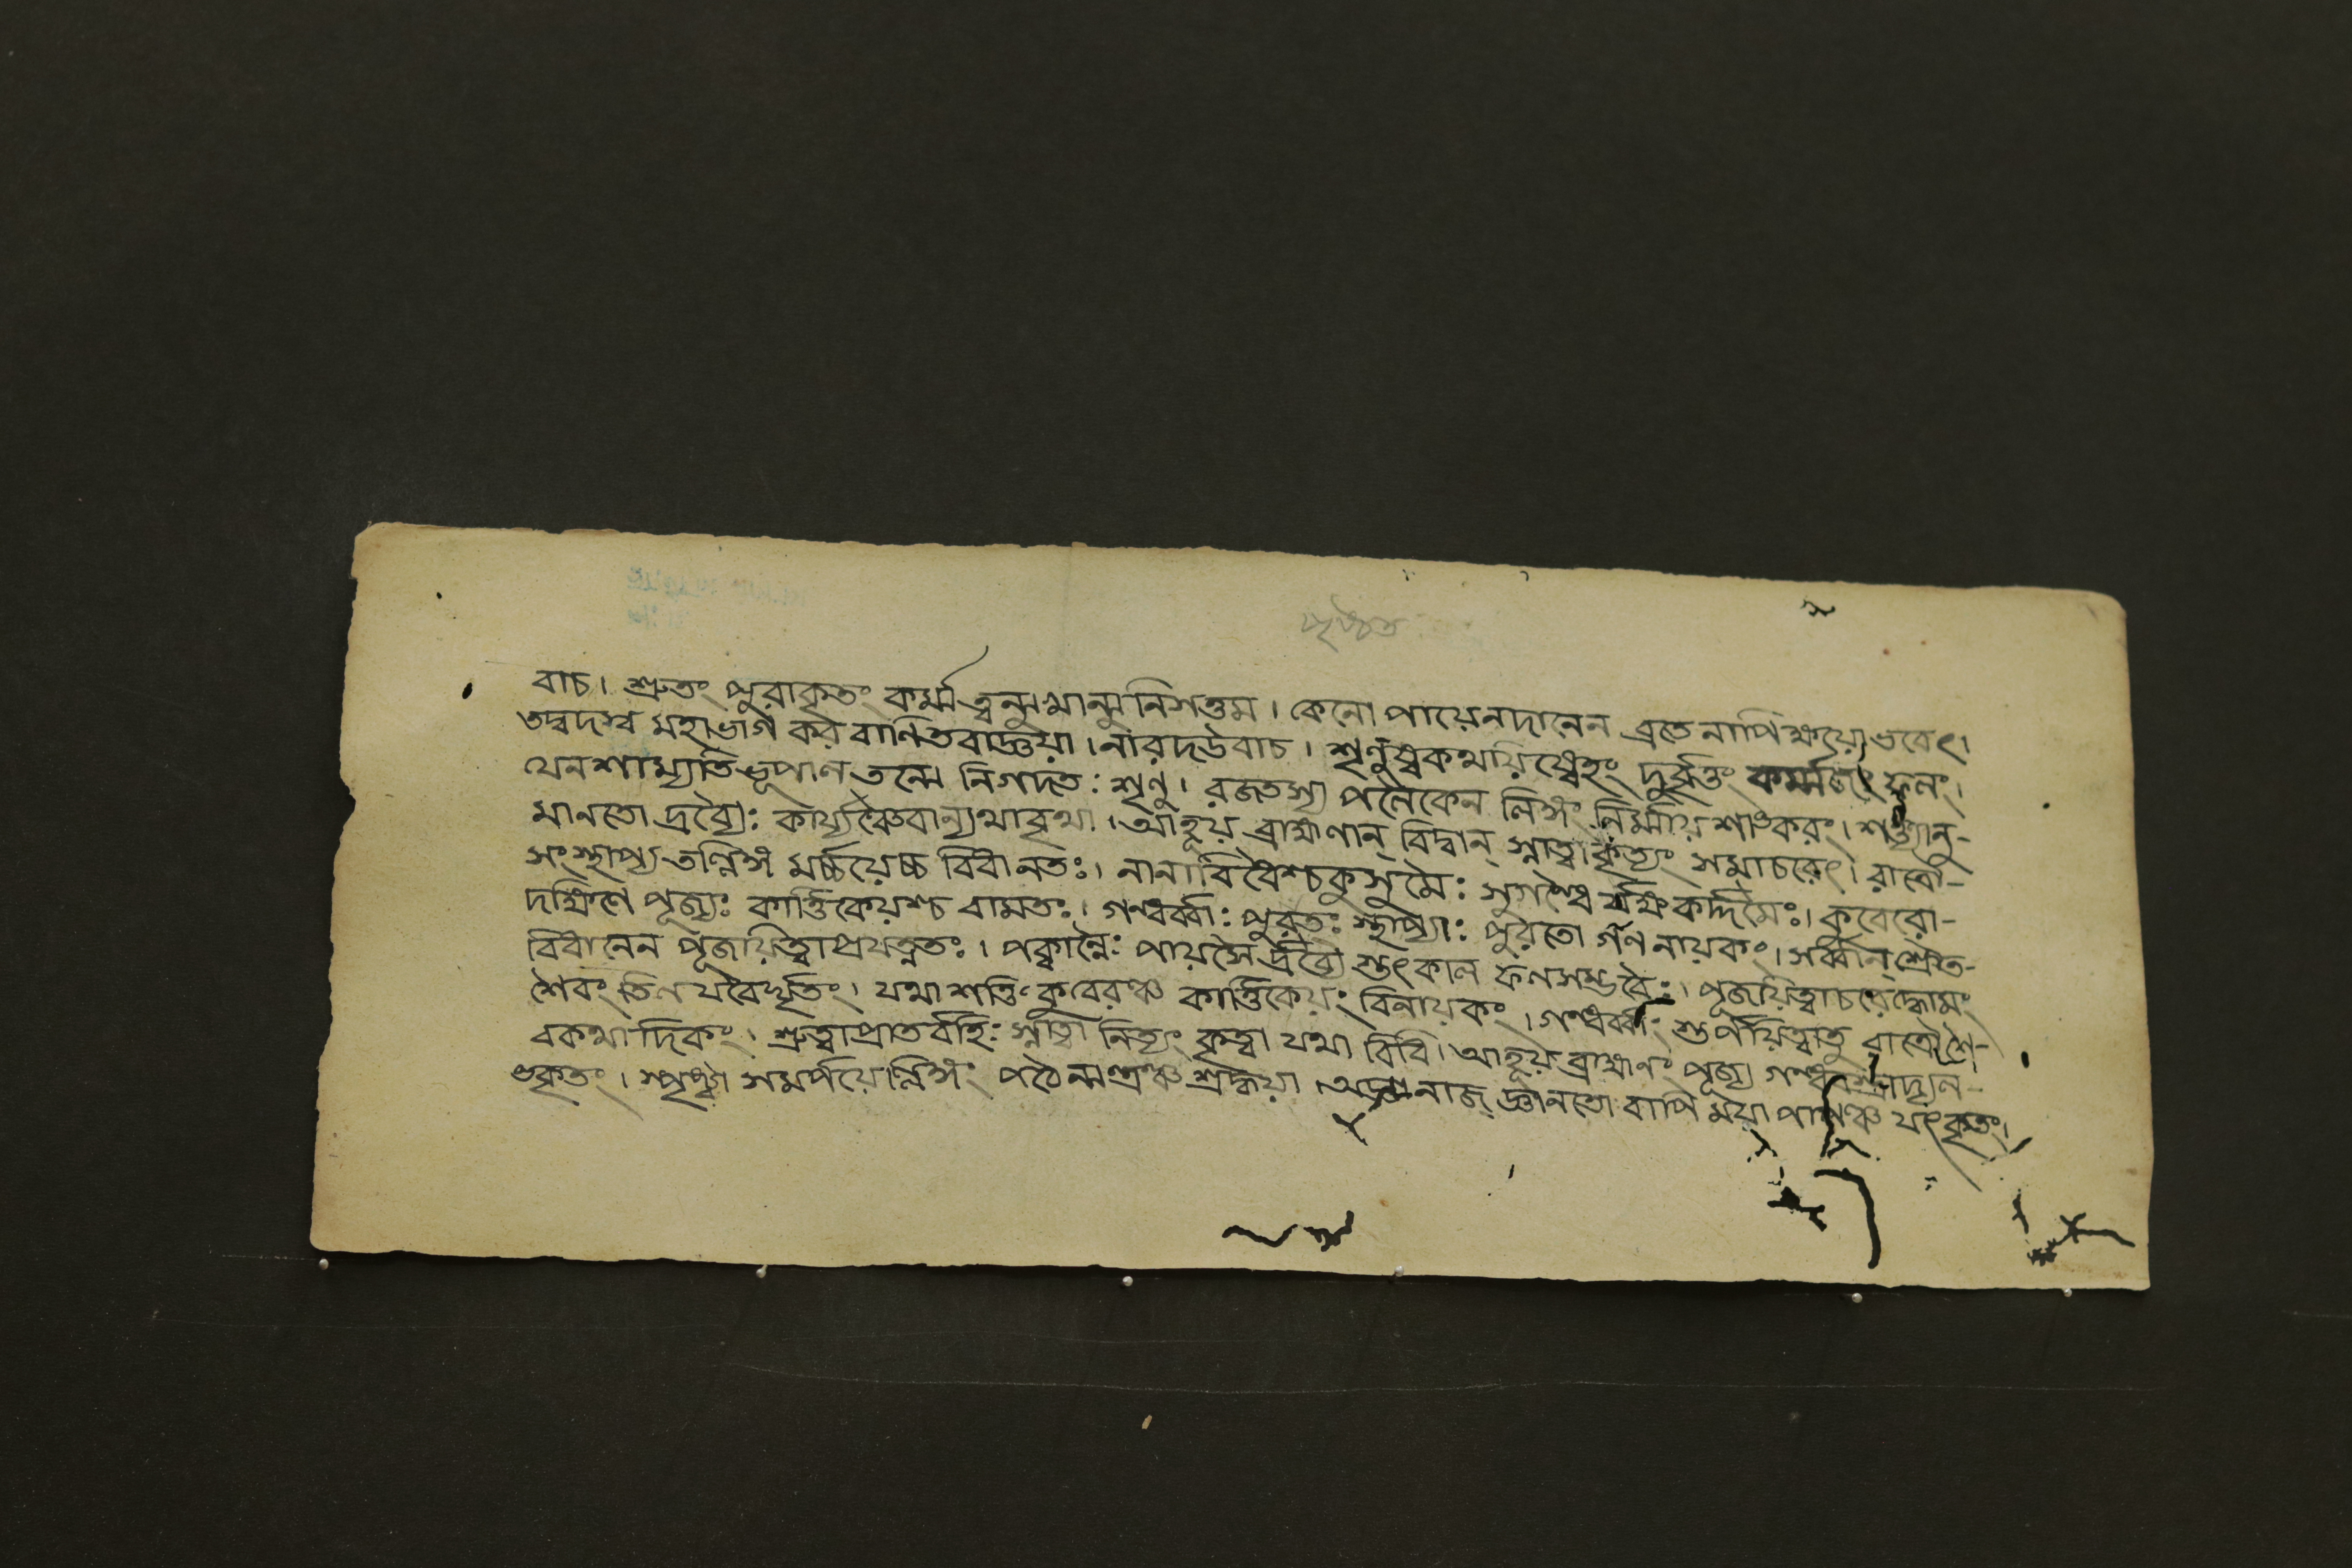 পৃষ্ঠত
বাচ। শ্রুতং পুরাকৃতং কর্ম্ম ত্বন্মুখান্মুনিসত্তম। কেনোপায়েনদানেন ব্রতেনাপি ক্ষয়ো ভবেৎ।
তদ্বদস্ব মহাভাগ করবাণি তবাজ্ঞয়া। নারদউবাচ। শৃণুষ্বকথয়িষ্যেহং দুর্ব্বৃত্তং কর্ম্মজং ফলং।
যেন শাম্যতি ভূপাল তন্মে নিগদতঃ শৃণু। রজতস্য পলৈকেন লিঙ্গং নির্ম্মায় শাঙ্করং। শক্ত্যানু-
মানতো দ্রব্যৈঃ কার্য্যঞ্চৈবান্যথাবৃথা। আহূয় ব্রাহ্মণান্ বিদ্বান্ স্নাত্বাকৃত্যং সমাচরেৎ। রাত্রৌ-
সংস্থাপ্য তল্লিঙ্গ মর্চ্চয়েচ্চ বিধানতঃ। নানাবিধৈশ্চকুসুমৈঃ সুগন্ধৈ র্যক্ষকর্দ্দমৈঃ। কুবেরো-
দক্ষিণে পূজ্যঃ কার্ত্তিকেয়শ্চ বামতঃ। গন্ধর্ব্বাঃ পুরতঃ স্থাপ্যাঃ পুরতো গণনায়কং। সর্ব্বান্ শ্রৌত-
বিধানেন পূজয়িত্বাপ্রযত্নতঃ। পক্বান্নৈঃ পায়সৈর্দ্রব্যৈ স্তৎকাল ফলসম্ভবৈঃ। পূজয়িত্বাচরেদ্ধোমং
শৈবং তিলযবৈর্ঘৃতং। যথাশক্তি কুবেরঞ্চ কার্ত্তিকেয়ং বিনায়কং। গন্ধর্ব্বাং স্তর্পয়িত্বাতু রাত্রৌ শৈ-
বকথাদিকং। শ্রুত্বাপ্রাতর্বহিঃ স্নাত্বা নিত্যং কৃত্বা যথা বিধি। আহূয় ব্রাহ্মণং পূজ্য গন্ধবস্ত্রাদ্যল-
ঙকৃতং। স্পৃষ্ট্বা সমর্পয়েল্লিঙ্গং পঠেন্মন্ত্রঞ্চ শ্রদ্ধয়া। জ্ঞানতো বাপি ময়া পাপঞ্চ যৎকৃতং।